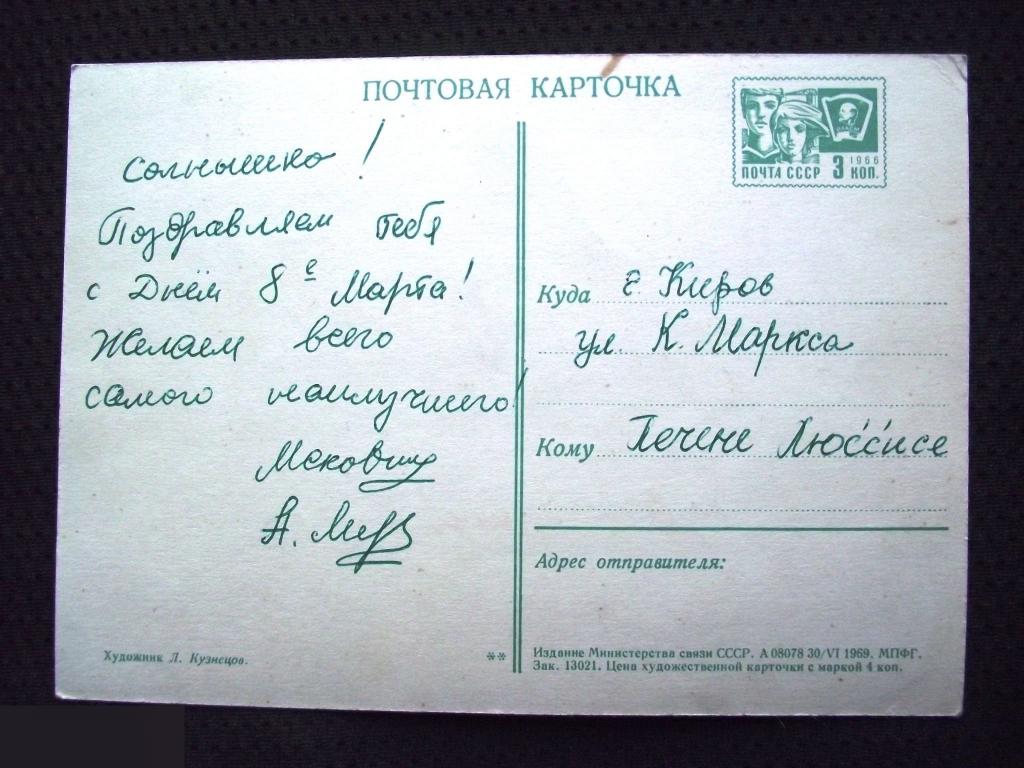 ПОЧТОВАЯ КАРТОЧКА
Солнышко!
Поздравляем тебя
с Днём 8е Марта!
Желаем всего
самого наилучшего!
ПОЧТА СССР 3 КОП.
1966
Куда г Киров
ул. К. Маркса
Кому Печене Люссисе
Адрес отправителя:
Художник Л. Кузнецов.
**
Издание Министерства связи СССР. А 08078 30/VI 1969. МПФГ.
Зак. 13021. Цена художественной карточки с маркой 4 коп.